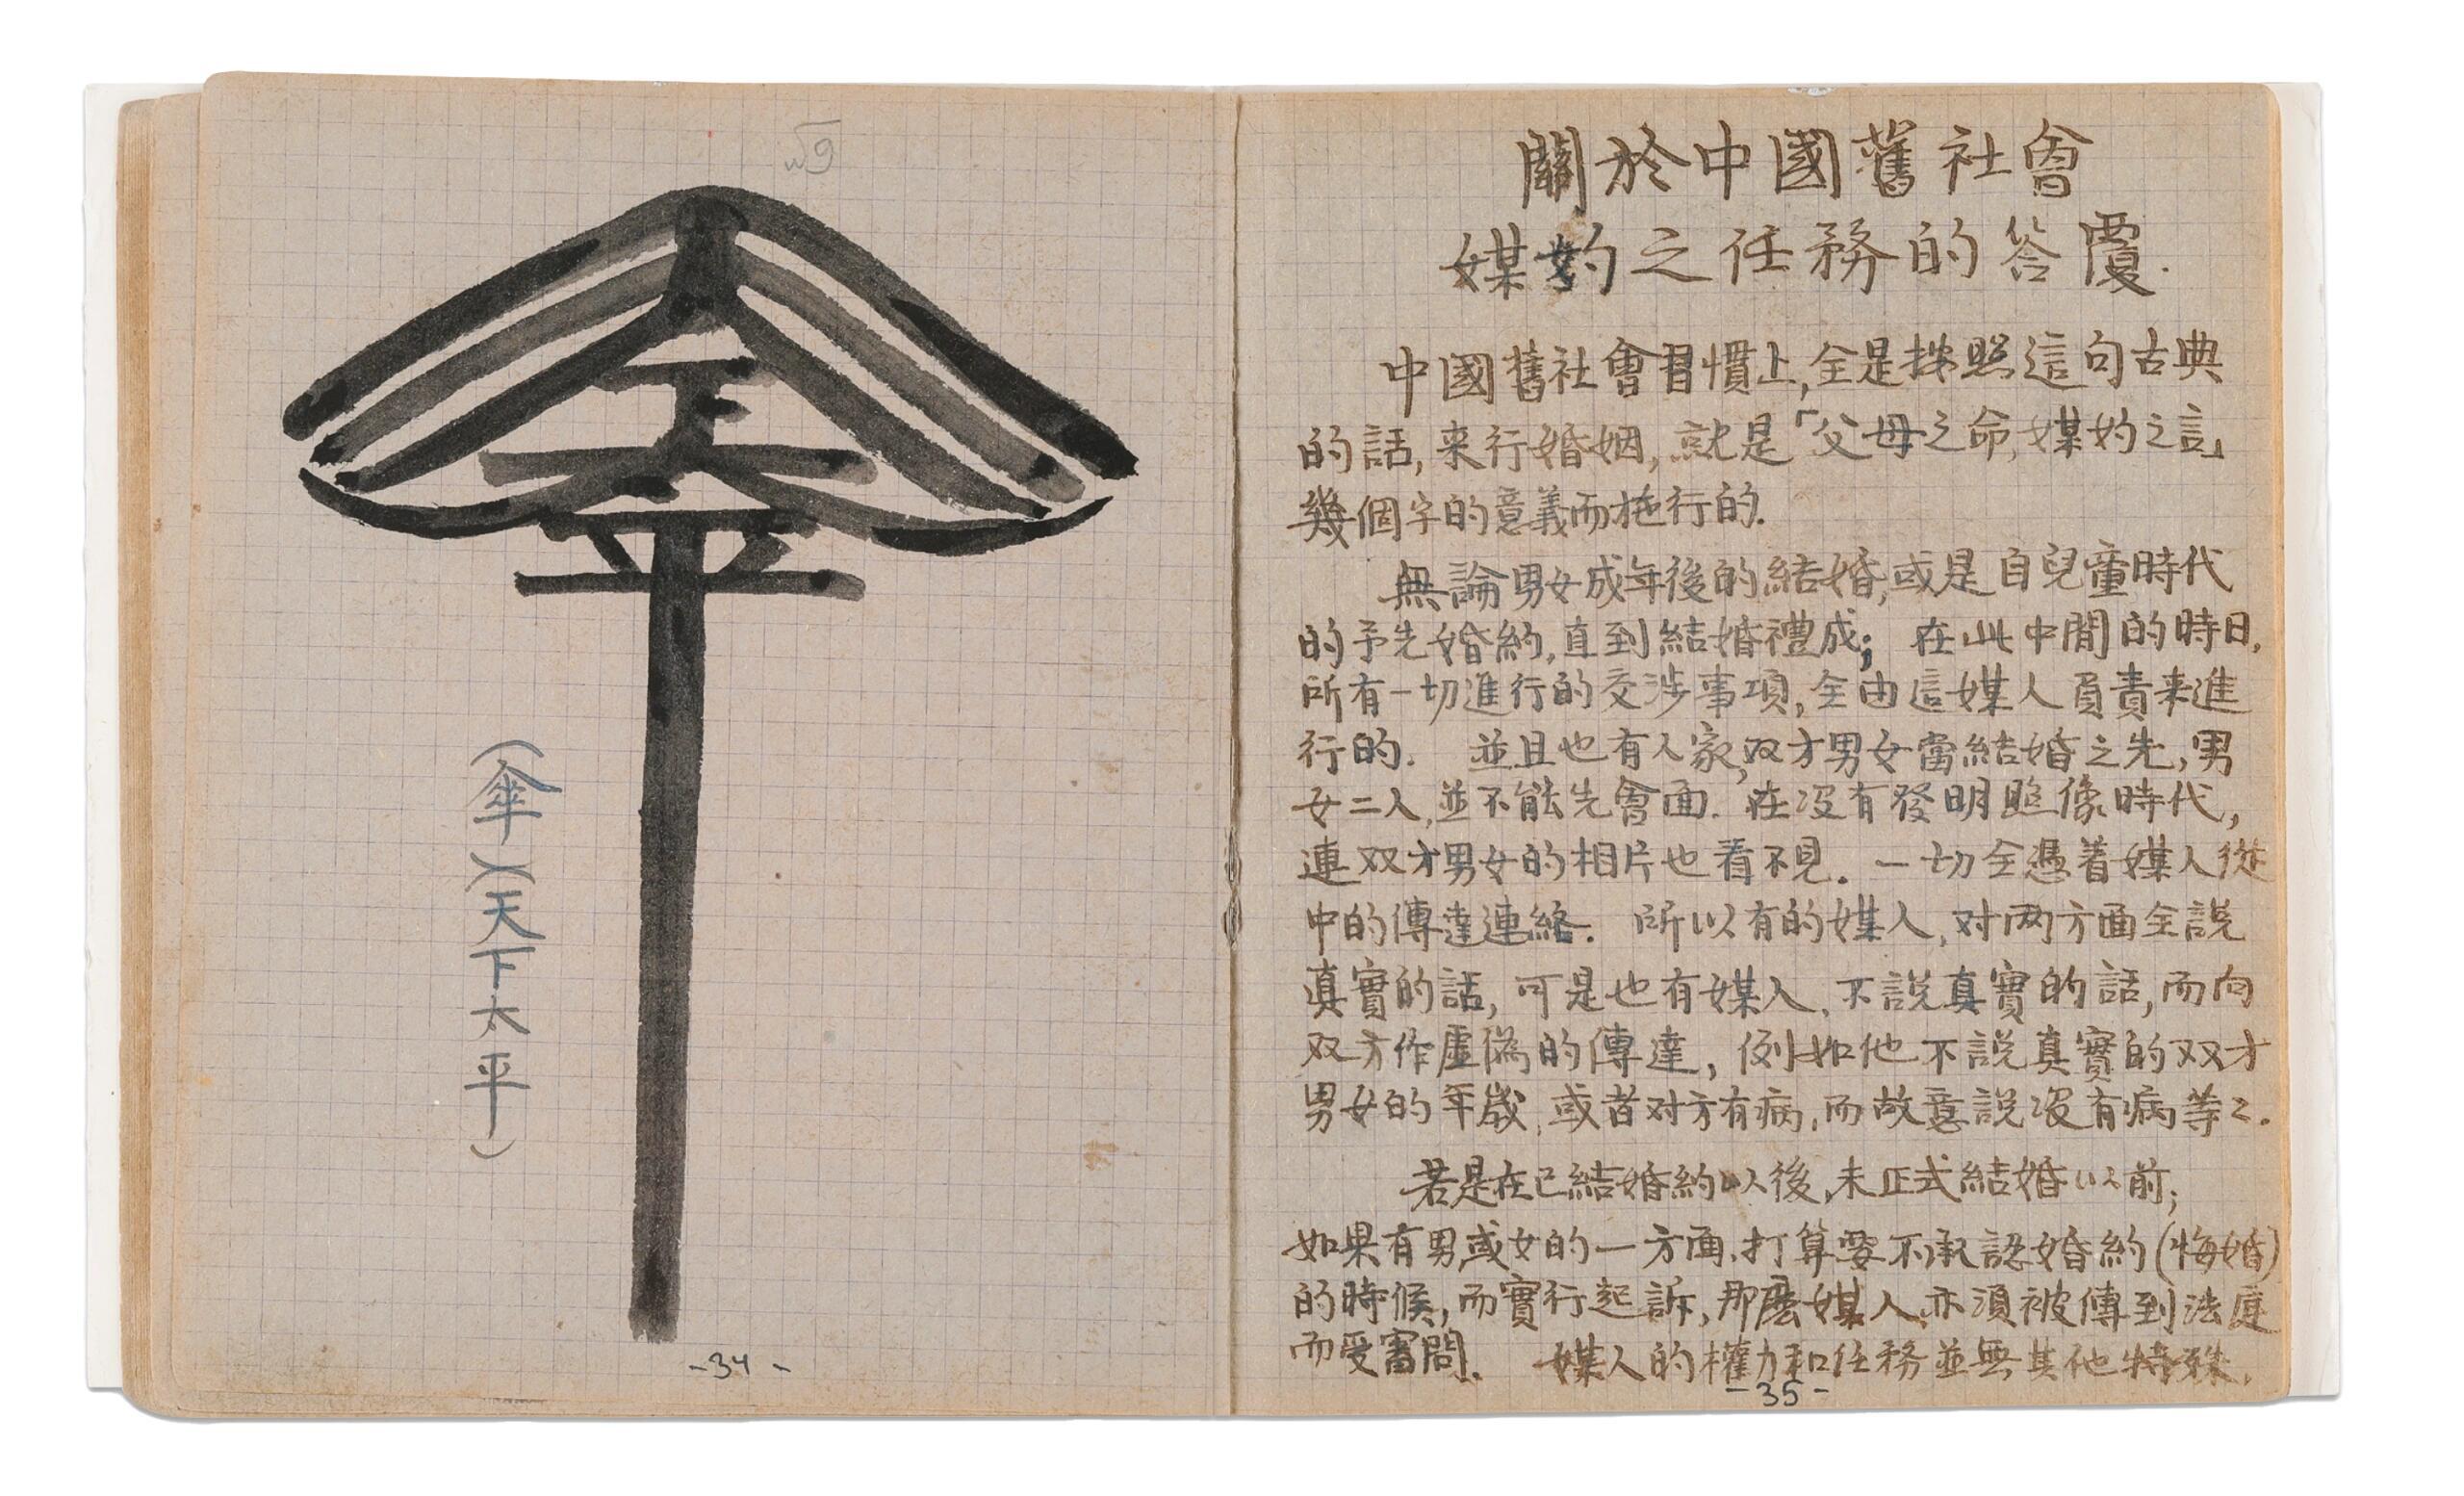 √9
(傘)(天下太平)
-34-
關於中國舊社會
媒妁之任務的答覆.
中國舊社會習慣上,全是按照這句古典
的話,来行婚姻,就是「父母之命,媒妁之言」
幾個字的意義而施行的.
無論男女成年後的結婚,或是自兒童時代
的予先婚約,直到結婚禮成; 在此中間的時日,
所有一切進行的交涉事項,全由這媒人負責来進
行的. 並且也有人家,双方男女當結婚之先,男
女二人,並不能先會面. 在没有發明照像時代,
連双方男女的相片也看不見. 一切全憑着媒人從
中的傳達連絡. 所以有的媒人,对两方面全説
真實的話,可是也有媒人,不説真實的話,而向
双方作虛偽的傳達,例如他不説真實的双方
男女的年歲,或者对方有病,而故意説没有病等々.
若是在已結婚約以後,未正式結婚以前;
如果有男或女的一方面,打算要不承認婚約(悔婚)
的時候,而實行起訴,那麽媒人,亦須被傳到法庭
而受審問. 媒人的權力和任務並無其他特殊.
-35-